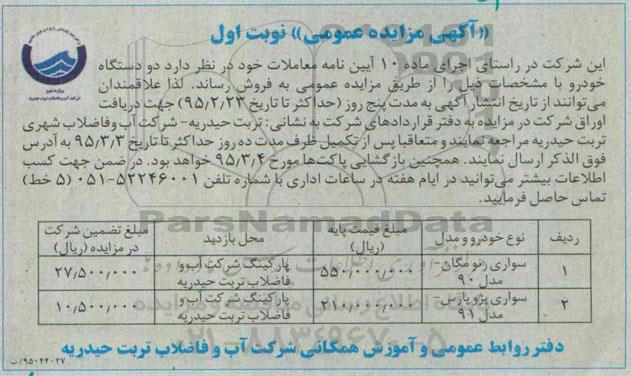 «آگهی مزایده عمومی» نوبت اول
این شرکت در راستای اجرای ماده ۱۰ آیین نامه معاملات خود در نظر دارد دو دستگاه
خودرو با مشخصات ذیل را از طریق مزایده عمومی به فروش رساند. لذا علاقمندان
می‌توانند از تاریخ انتشار آگهی به مدت پنج روز (حداکثر تا تاریخ ۹۵/۲/۲۳) جهت دریافت
اوراق شرکت در مزایده به دفتر قراردادهای شرکت به نشانی: تربت حیدریه- شرکت آب وفاضلاب شهری
تربت حیدریه مراجعه نمایند و متعاقبا پس از تکمیل ظرف مدت ده روز حداکثر تا تاریخ ۹۵/۳/۳ به آدرس
فوق الذکر ارسال نمایند. همچنین بازگشایی پاکت‌ها مورخ ۹۵/۳/۴ خواهد بود. در ضمن جهت کسب
اطلاعات بیشتر می‌توانید در ایام هفته در ساعات اداری با شماره تلفن ۵۲۲۴۶۰۰۱-۰۵۱ (۵ خط)
تماس حاصل فرمایید.
ParsNamadData
ردیف نوع خودرو و مدل مبلغ قیمت پایه (ریال) محل بازدید مبلغ تضمین شرکت در مزایده (ریال)
۱ سواری رنو مگان- مدل ۹۰ ۵۵۰/۰۰۰/۰۰۰ پارکینگ شرکت آب و فاضلاب تربت حیدریه ۲۷/۵۰۰/۰۰۰
۲ سواری پژو پارس- مدل ۹۱ ۲۱۰/۰۰۰/۰۰۰ پارکینگ شرکت آب و فاضلاب تربت حیدریه ۱۰/۵۰۰/۰۰۰
دفتر روابط عمومی و آموزش همگانی شرکت آب و فاضلاب تربت حیدریه
۹۵۰۴۴۰۲۷/ب